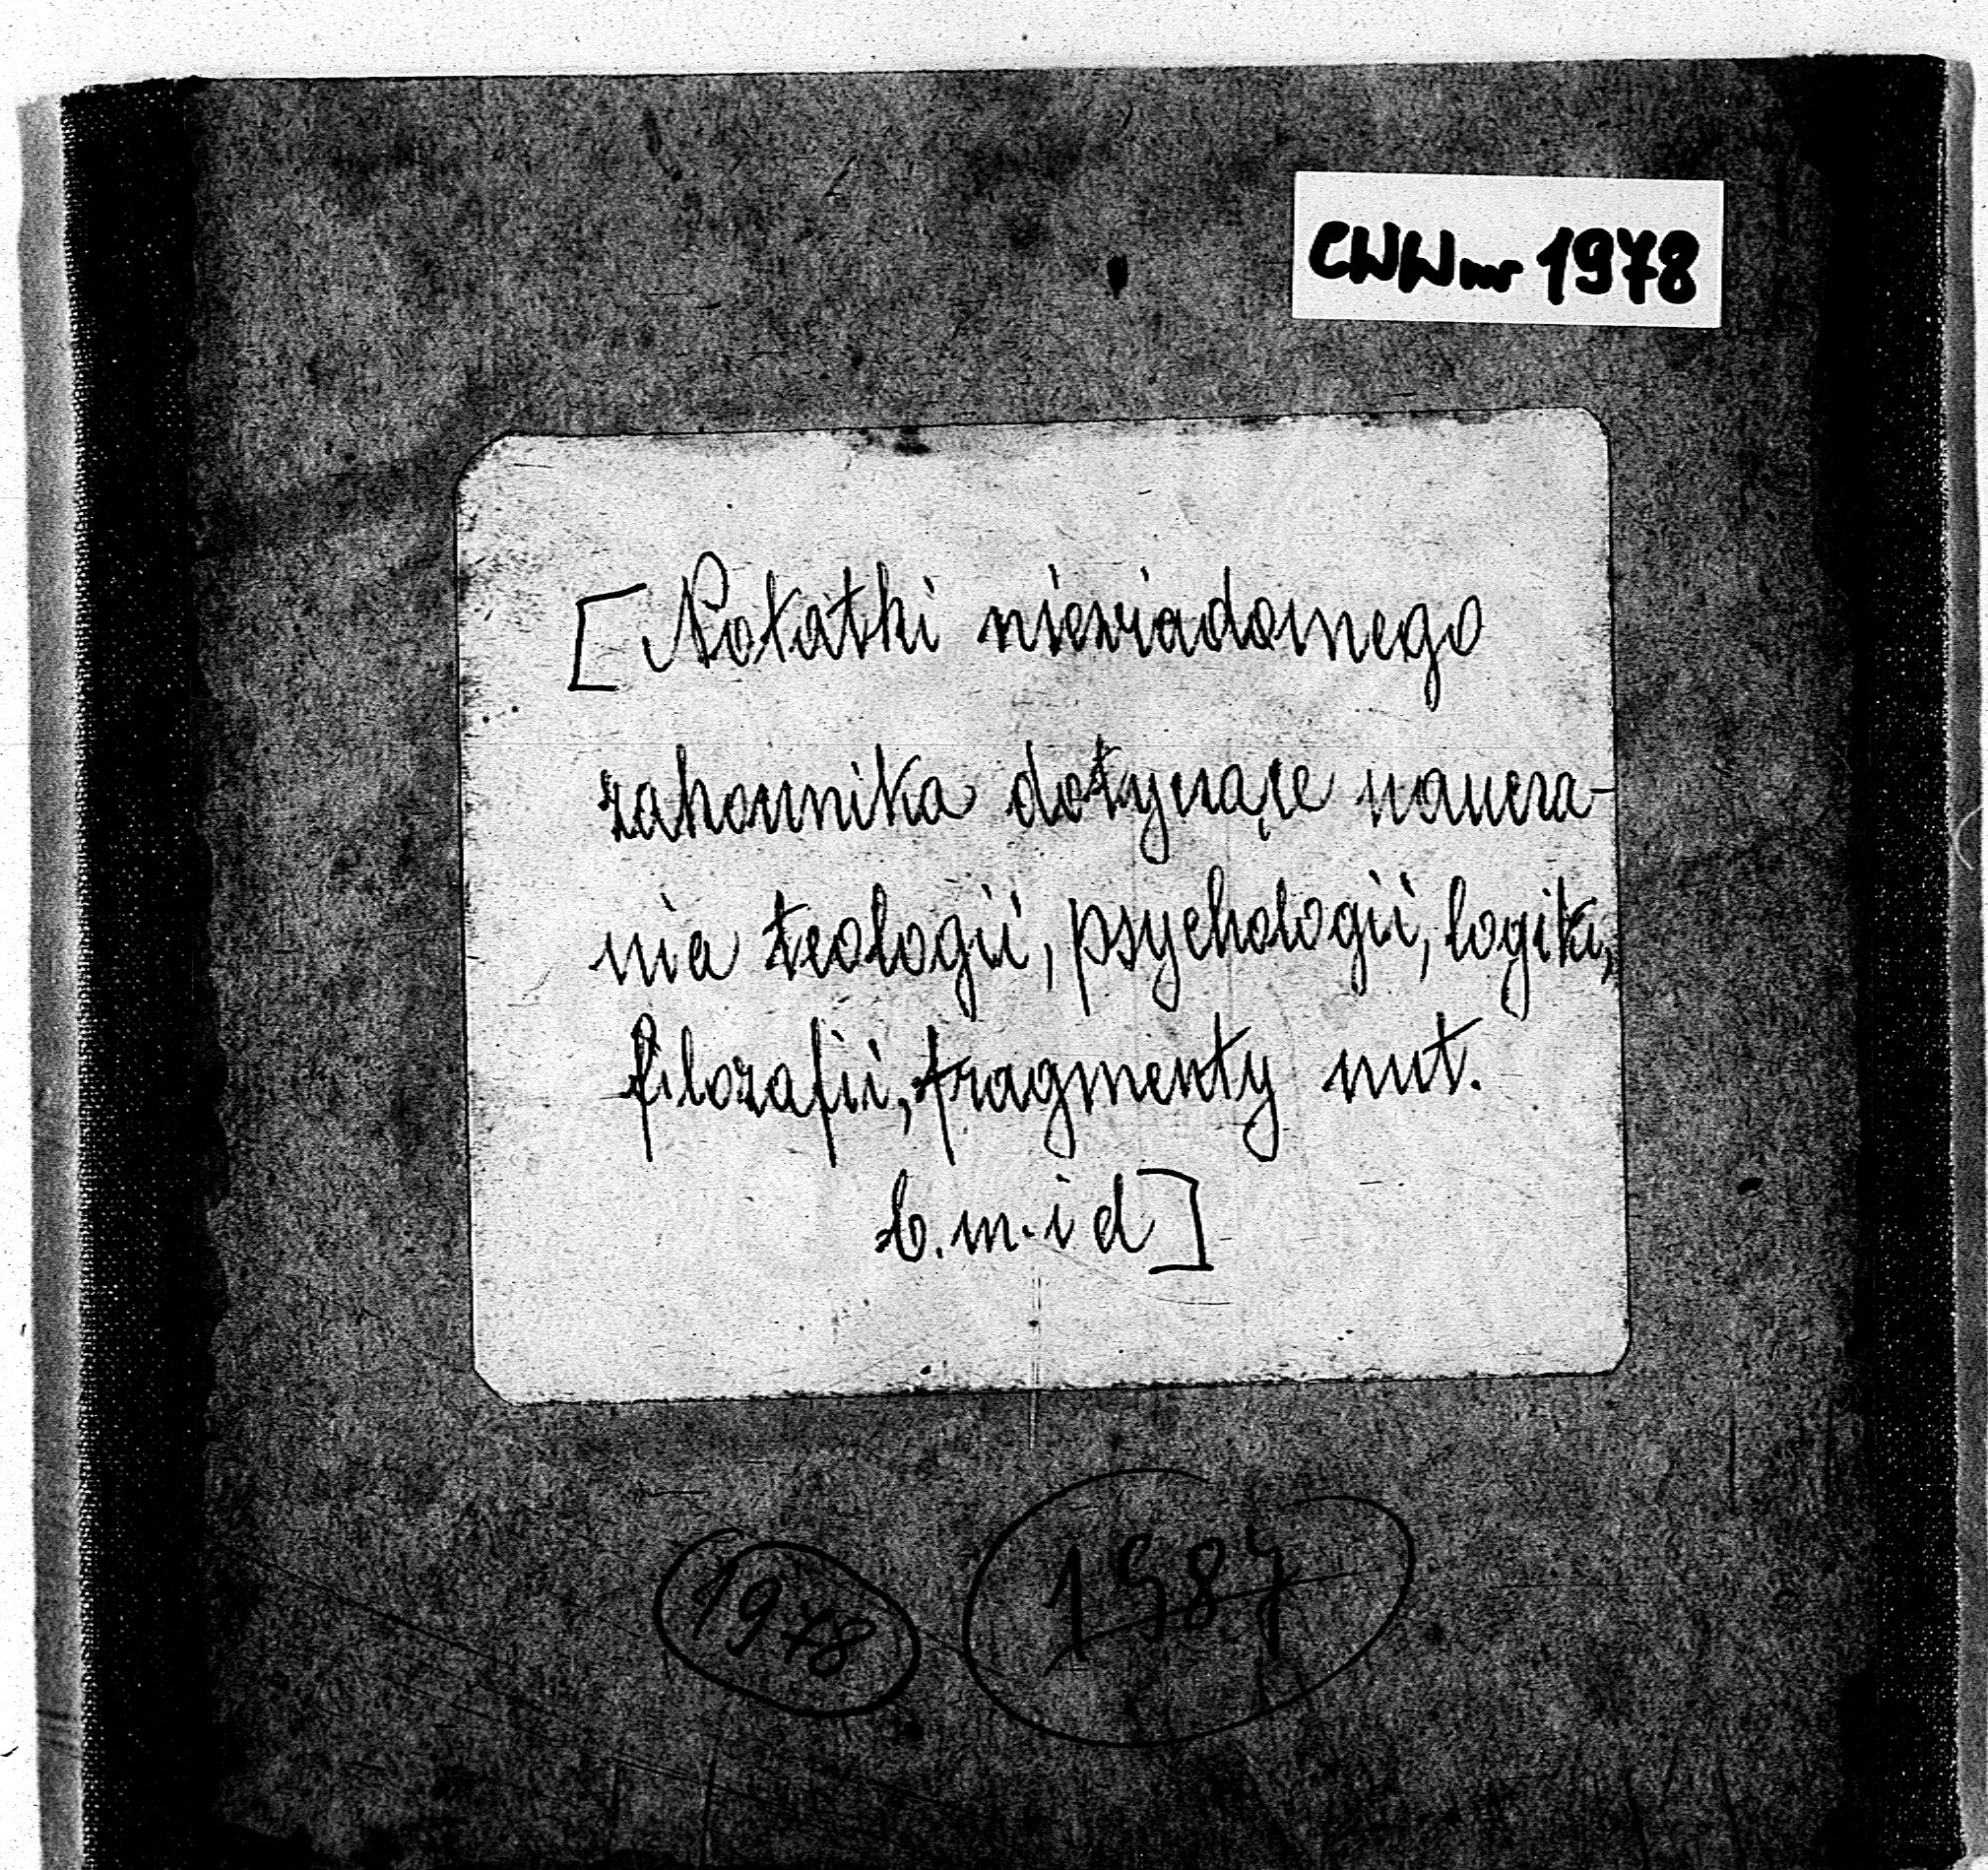 CWW nr 1978
[Notatki niewiadomego
zakonnika dotyczące naucza-
nia teologii, psychologii, logika,
filozafii, fragmenty nut.
b.m.i d]
1978
1987